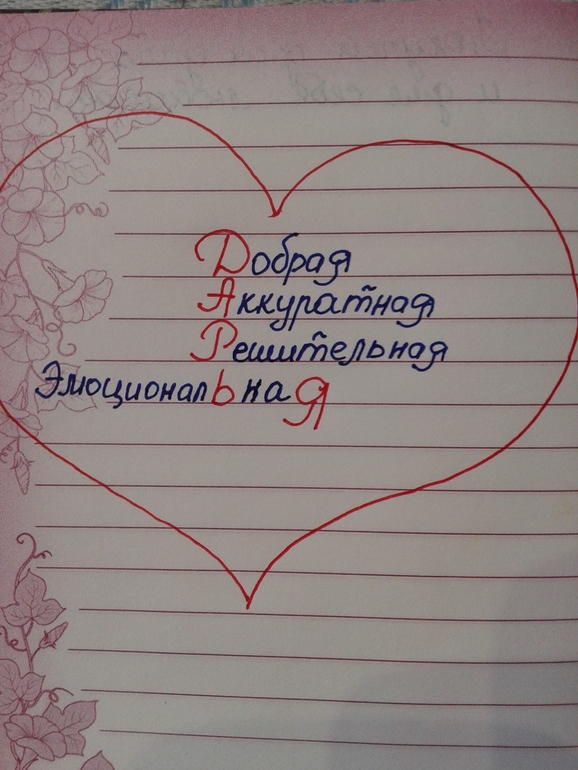 Добрая
Аккуратная
Решительная
ЭмоционалЬнаЯ